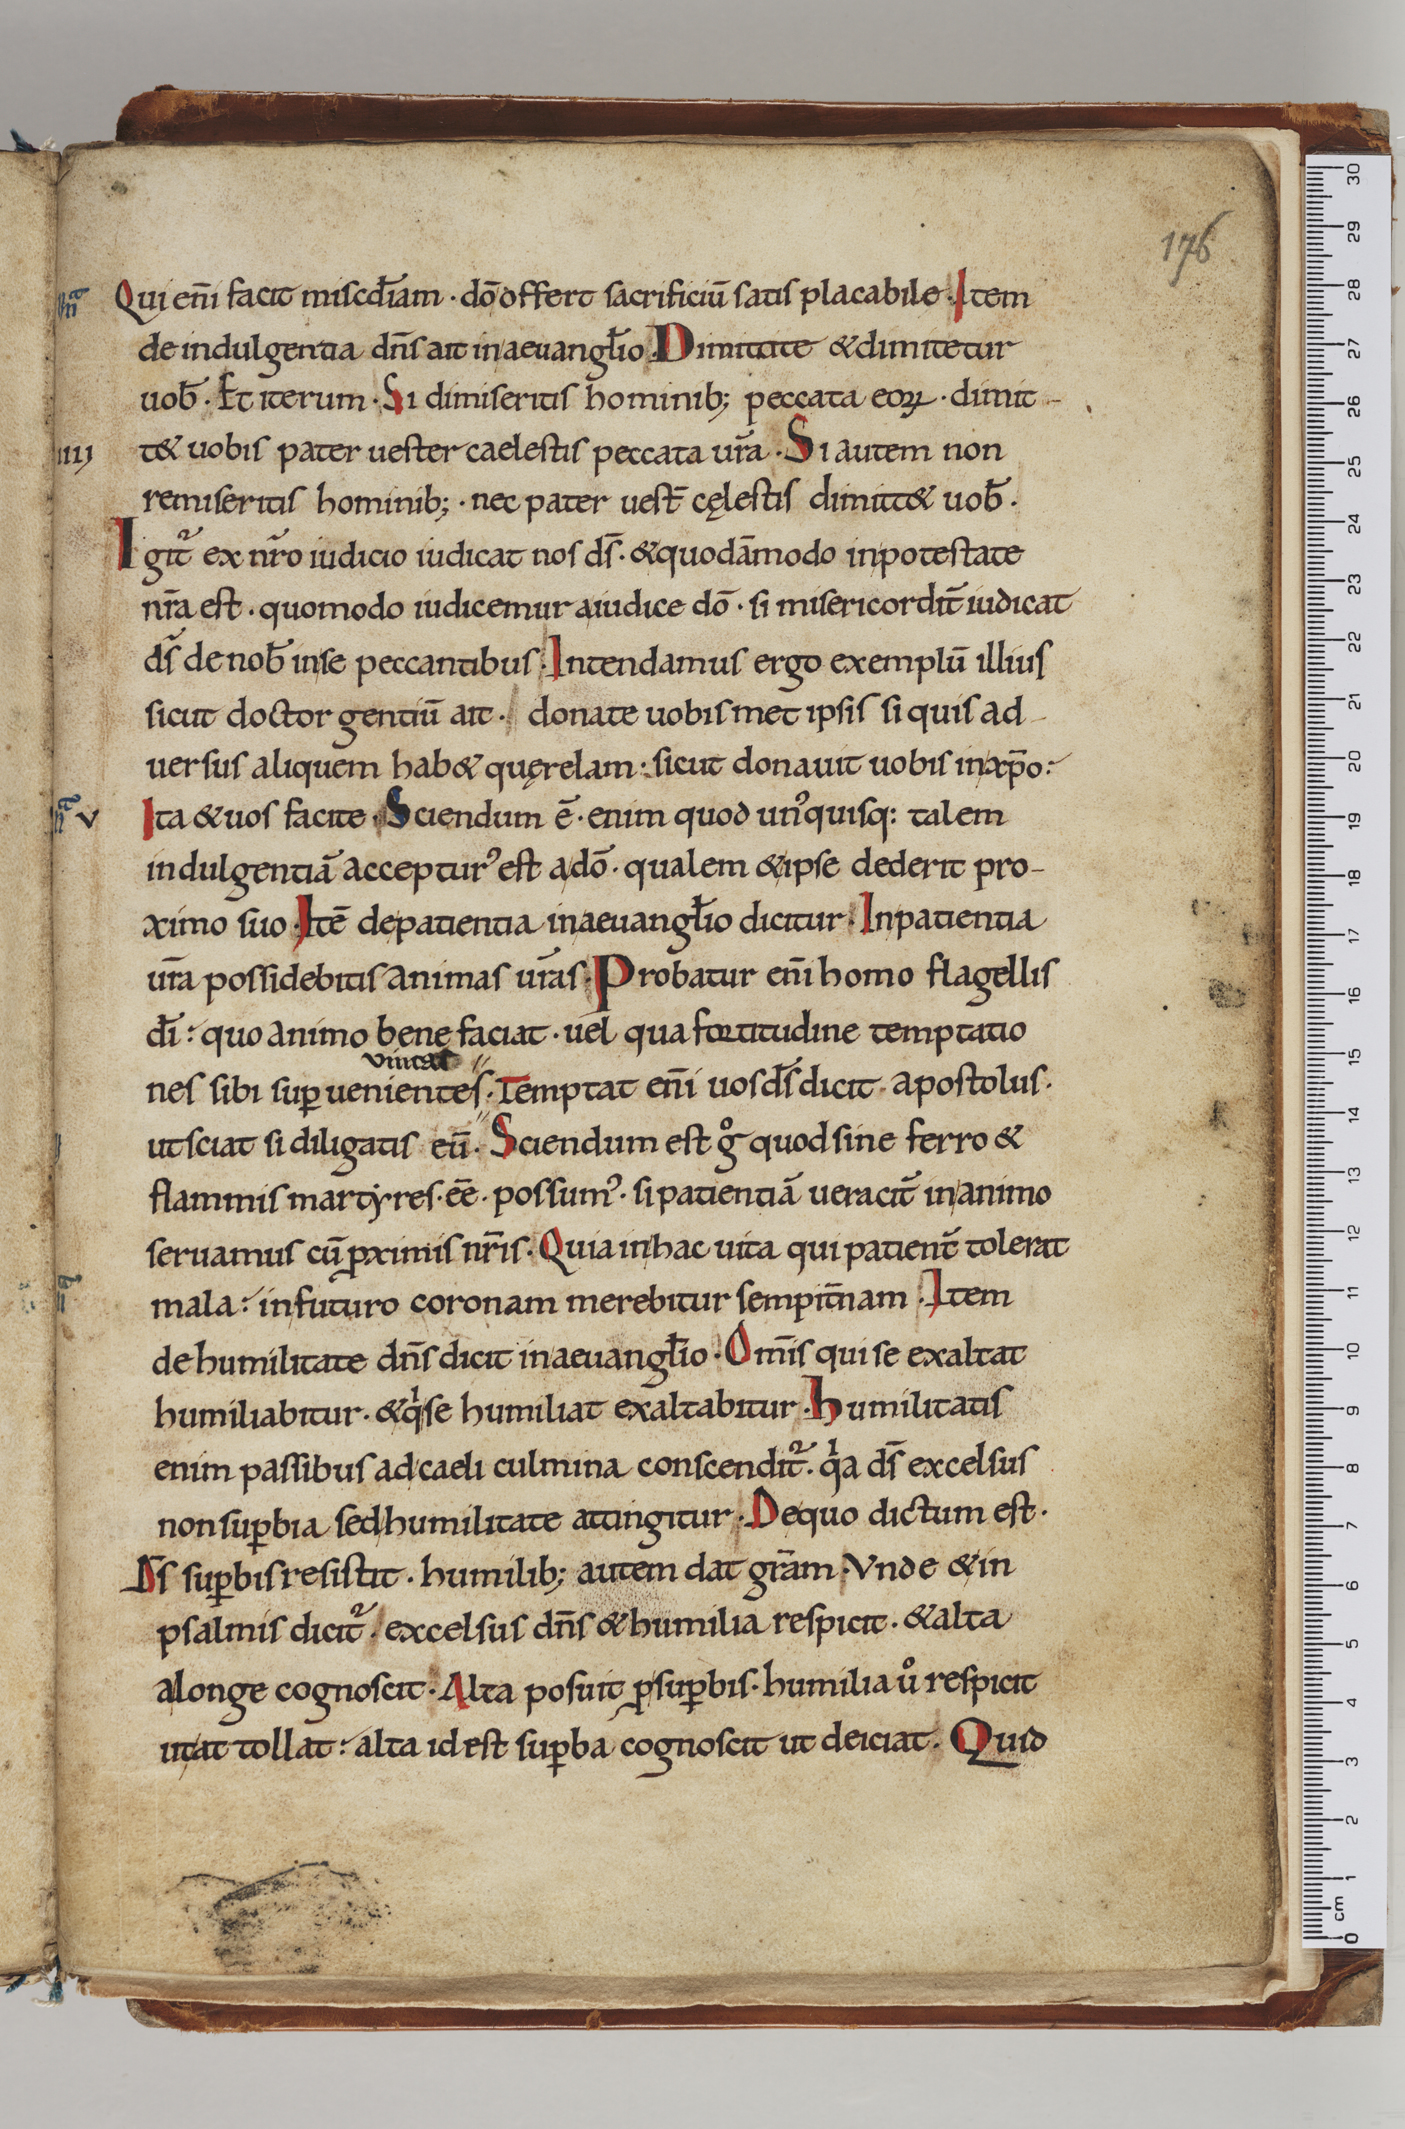 176
Qui eni̅ facit miscd̅iam · dō offert sacrificiū satis placabile · Item
de indulgentia dn̅s ait in aeuangl̅io · Dimittite & dimitetur
uob̅ · Et iterum · Si dimiseritis hominib; peccata eoꝝ · dimit-
IIIJ t& uobis pater uester caelestis peccata ur̅a · Si autem non
remiseritis hominib; · nec pater uest̅ cęlestis dimitt& uob̅ ·
Igit᷑ ex nr̅o iudicio iudicat nos ds̅ · & quodāmodo in potestate
nr̅a est · quomodo iudicemur a iudice dō · si misericordit̅ iudicat
ds̅ de nob̅ in se peccantibus · Intendamus ergo exemplū illius
sicut doctor gentiū ait · donate uobis met ipsis si quis ad-
uersus aliquem hab& quęrelam : sicut donauit uobis in xp̅o :
V Ita & uos facite · Sciendum ē · enim quod un᾿quisq: talem
indulgentiā acceptur᾿ est a dō · qualem & ipse dederit pro-
ximo suo · Itē de patientia in aeuangl̅io dicitur · In patientia
ur̅a possidebitis animas ur̅as · Probatur eni̅ homo flagellis
di̅ : quo animo bene faciat · uel qua fortitudine temptatio
uincat
nes sibi suꝑuenientes · Temptat eni̅ uos ds̅ dicit apostolus ·
ut sciat si diligatis eū · Sciendum est gͦ quod sine ferro &
flammis martẏres · ēē · possum᾿ · si patientiā ueracit̅ in animo
seruamus cū ꝓximis nr̅is · Quia in hac uita qui patient̅ tolerat
mala : in futuro coronam merebitur sempit̅nam · Item
de humilitate dn̅s dicit in aeuangl̅io · Om̅is qui se exaltat
humiliabitur · & qͥ se humiliat exaltabitur · Humilitatis
enim passibus ad caeli culmina conscendit᷑ · qͥa ds̅ excelsus
non suꝑbia sed humilitate attingitur · De quo dictum est ·
Ds̅ suꝑbis resistit · humilib; autem dat gr̅am · Vnde & in
psalmis dicit᷑ · excelsus dn̅s & humilia respicit · & alta
a longe cognoscit · Alta posuit ꝓ suꝑbis · humilia uͦ respicit
ut at tollat : alta id est suꝑba cognoscit ut deiciat · Quid